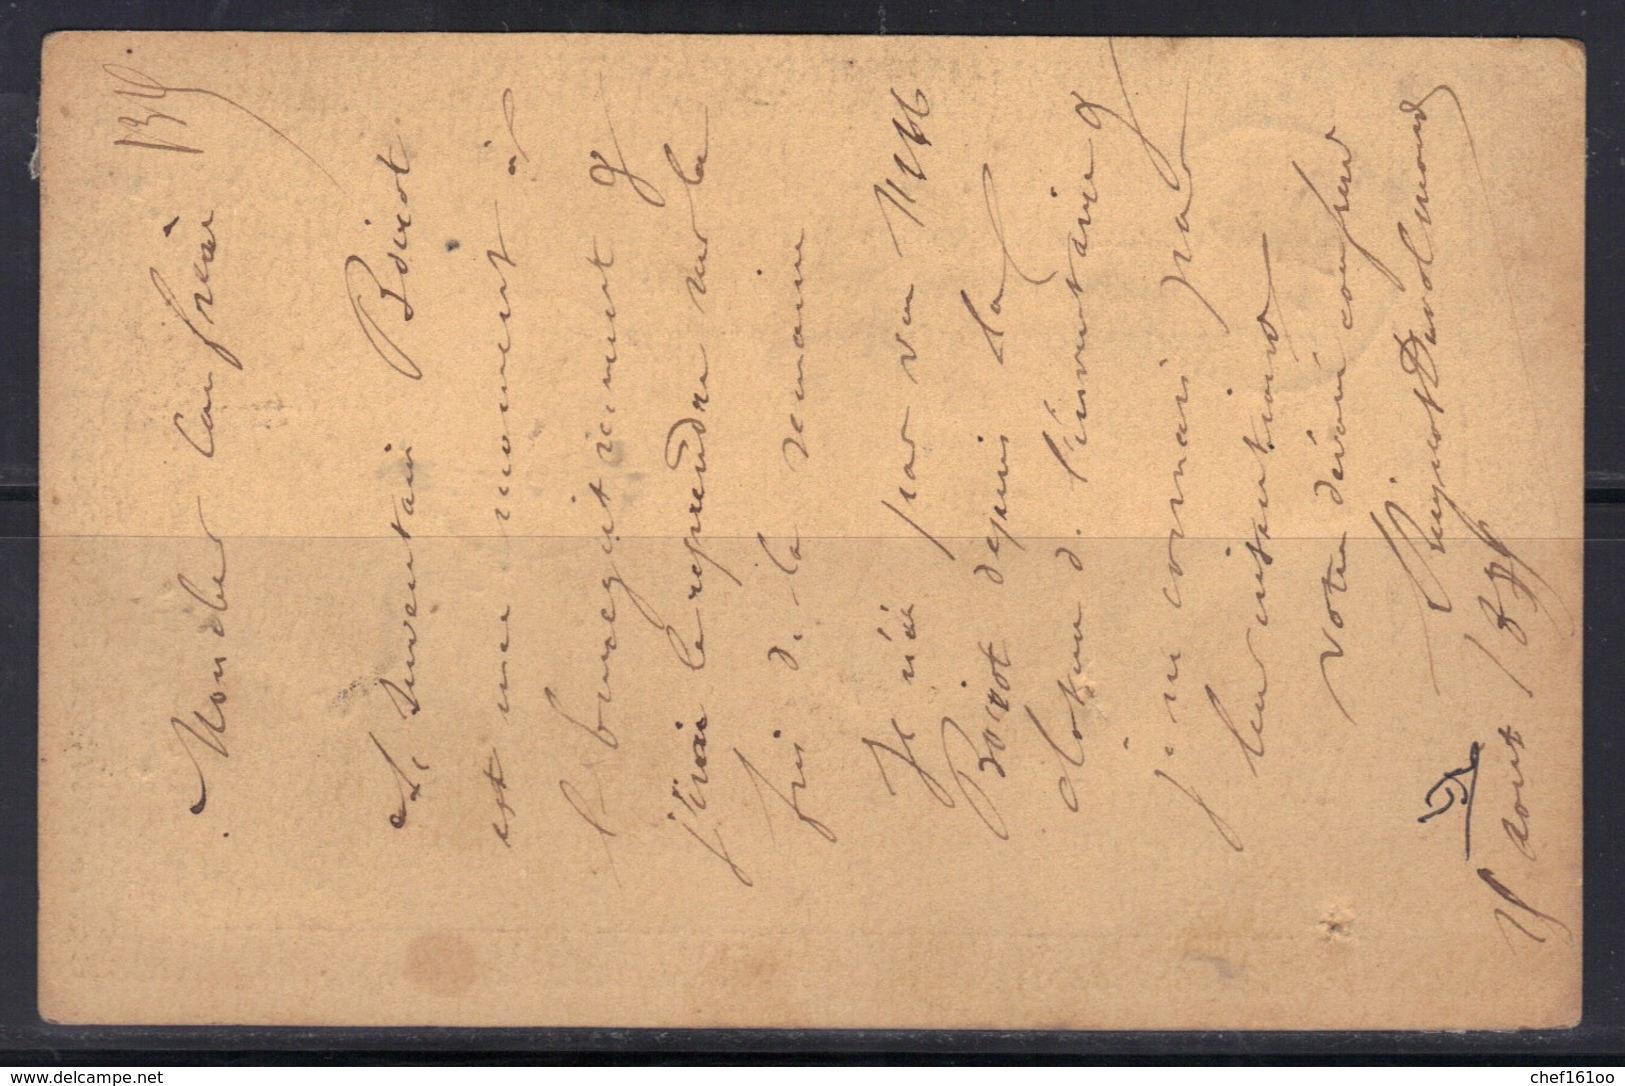 Mon cher Confrère
L'inventaire Boirot
est en ce moment à
l'enregistrement &
j'irai le reprendre sur la
fin de la semaine
Je n'ai pas vu MM
Boirot depuis la
cloture de l'inventaire &
je ne connais pas
leurs intentions
Votre dévoué confrère
15 aout 188
© delcampe.net
chef16100